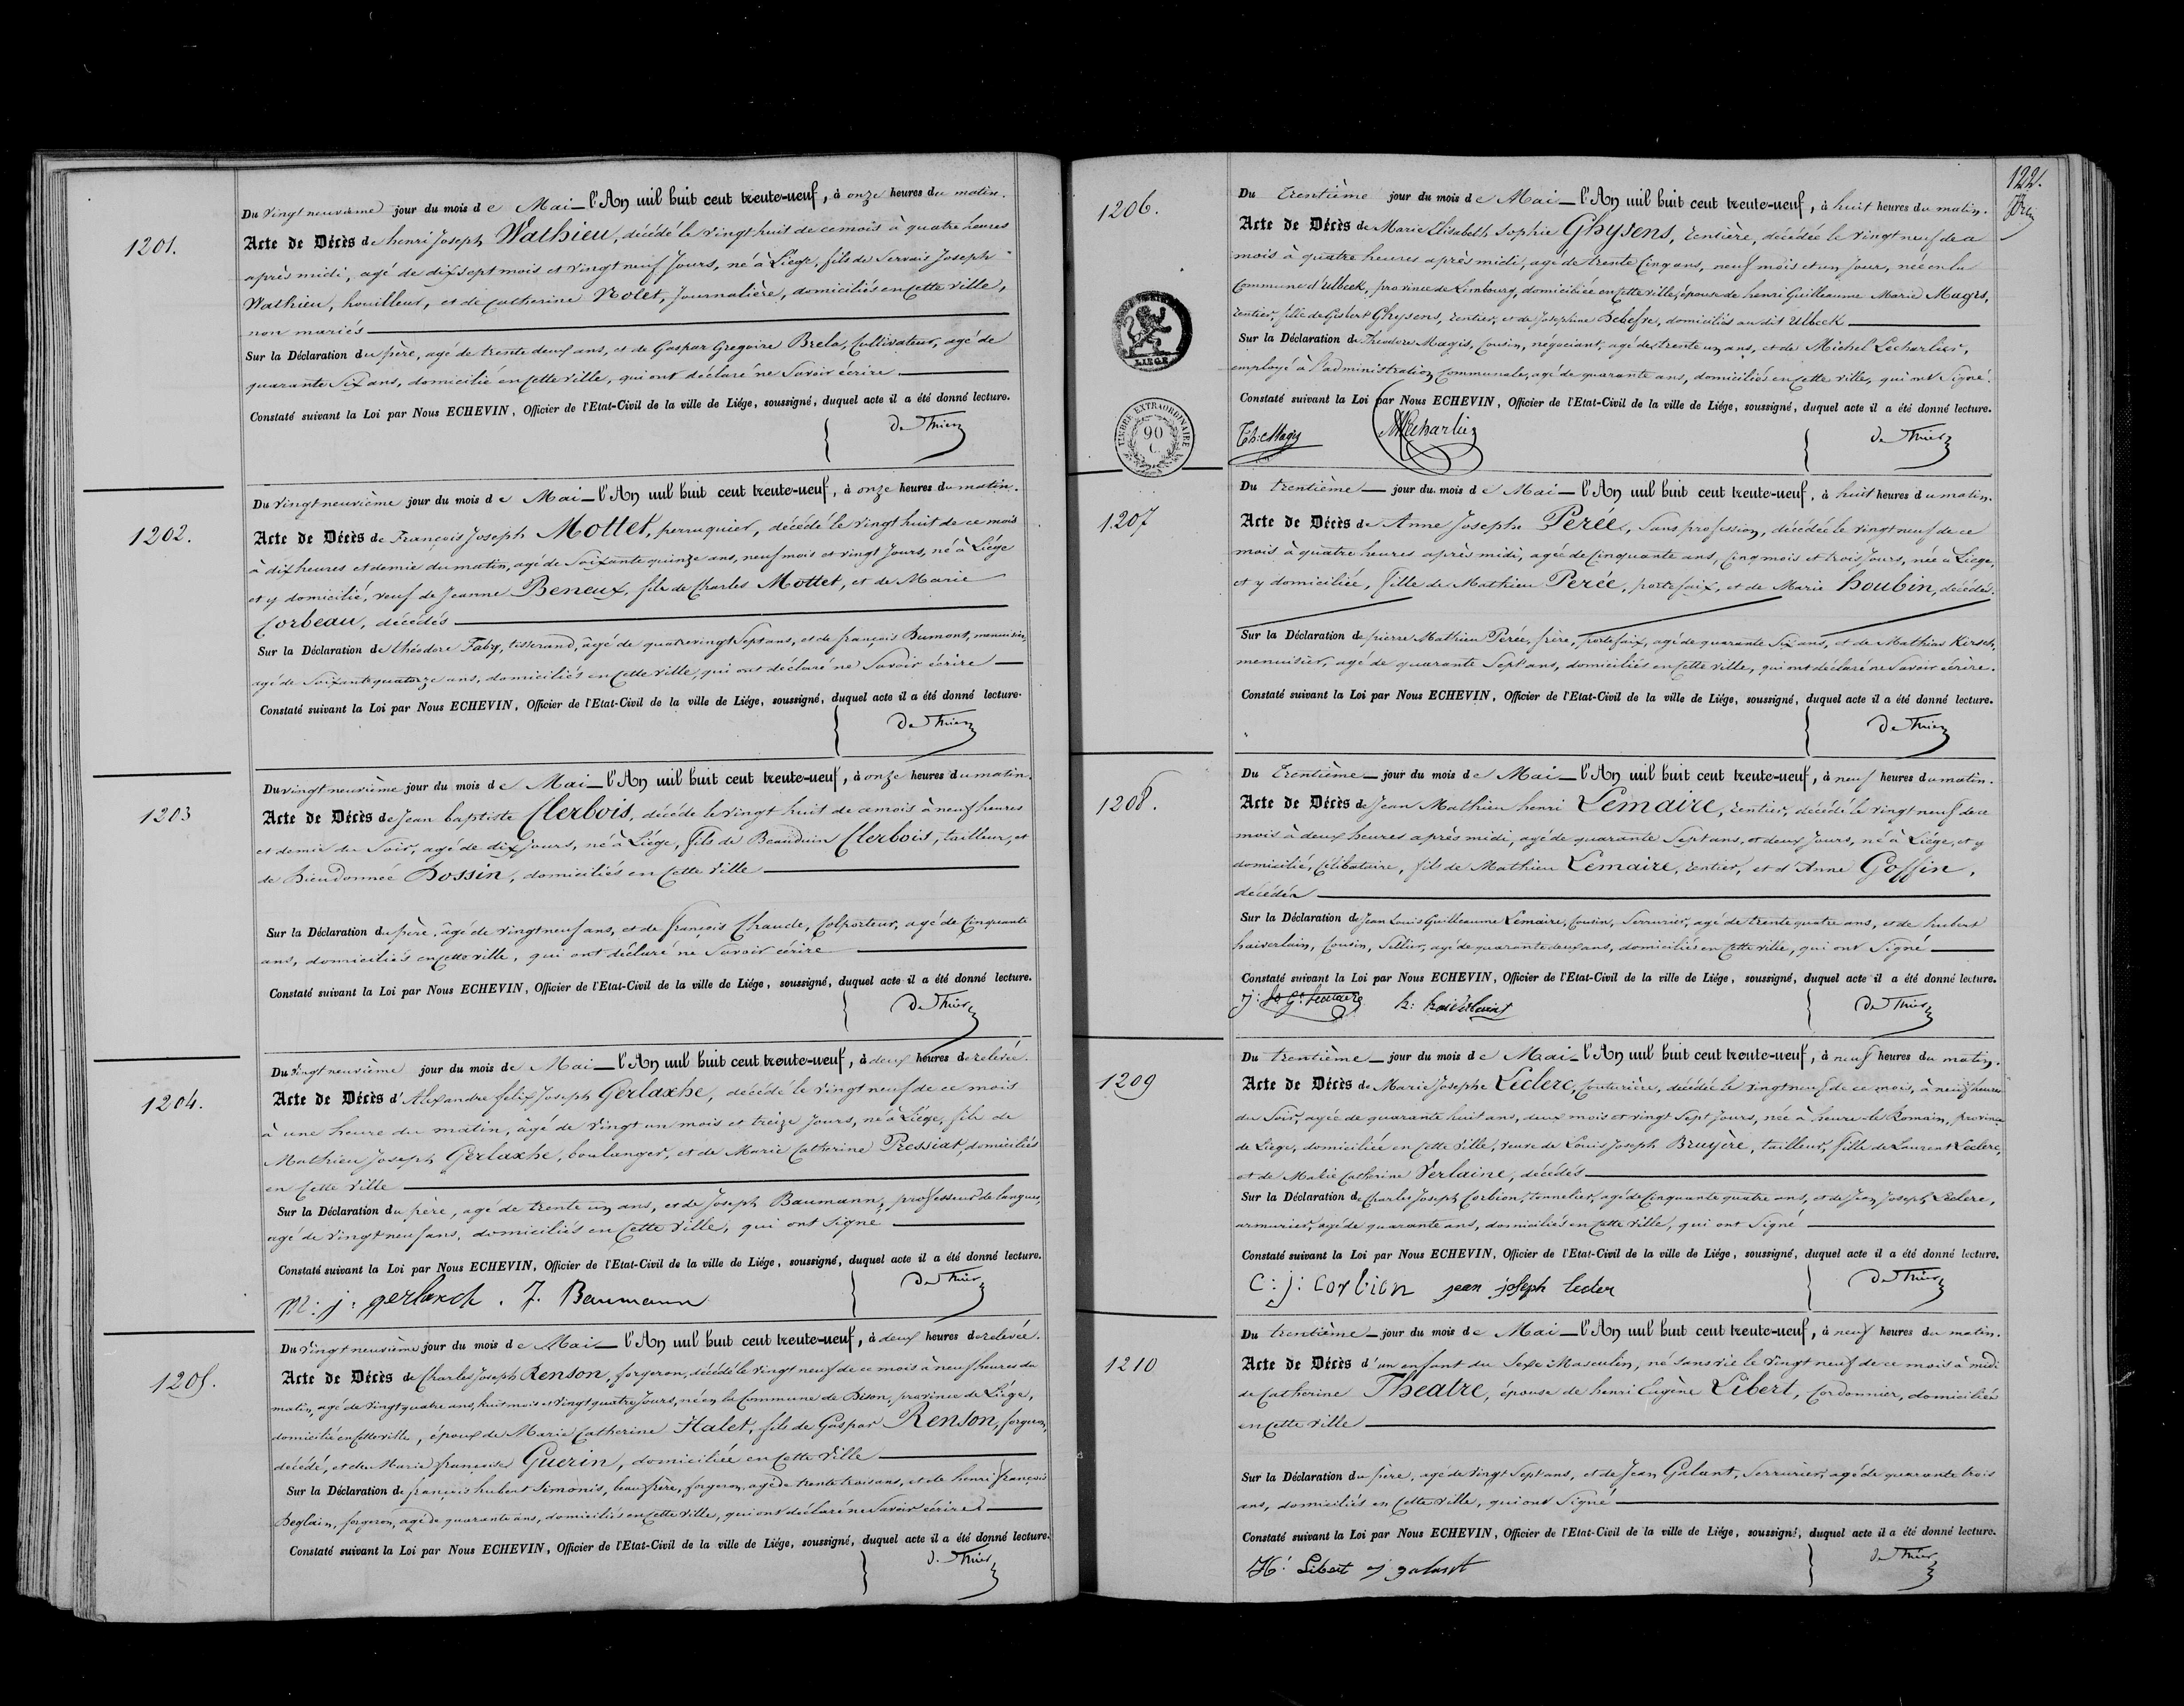 1201.
Du vingt neuvième jour du mois de Mai l'An mil huit cent trente-neuf, à onze heures du matin.
Acte de Décès de henri Joseph Wathieu, décédé le vingt huit de ce mois à quatre heures
après midi, agé de dix sept mois et vingt neuf Jours, né à Liége, fils de Servais Joseph
Wathieu, houilleur, et de Catherine Nolet, Journalière, domiciliés en cette ville,
non mariés
Sur la Déclaration du père, agé de trente deux ans, et de Gaspar Gregoire Brela, Cultivateur, agé de
quarante Six ans, domicilié en cette ville, qui ont déclaré ne Savoir écrire
Constaté suivant la Loi par Nous ECHEVIN, Officier de l'Etat-Civil de la ville de Liége, soussigné, duquel acte il a été donné lecture.
De Thier
1202.
Du vingt neuvième jour du mois de Mai l'An mil huit cent trente-neuf, à onze heures du matin.
Acte de Décès de François Joseph Mottet, perruquier, décédé le vingt huit de ce mois
à dix heures et demie du matin, agé de Soixante quinze ans, neuf mois et vingt Jours, né à Liége
et y domicilié, veuf de Jeanne Beneux, fils de Charles Mottet, et de Marie
Corbeau, décédés
Sur la Déclaration de théodore Faby, tisserand, agé de quatre vingt Sept ans, et de françois Dumont, menuisier,
agé de Soixante quatorze ans, domiciliés en cette ville, qui ont déclaré ne Savoir écrire
Constaté suivant la Loi par Nous ECHEVIN, Officier de l'Etat-Civil de la ville de Liége, soussigné, duquel acte il a été donné lecture.
De Thier
1203
Du vingt neuvième jour du mois de Mai l'An mil huit cent trente-neuf, à onze heures du matin.
Acte de Décès de Jean baptiste Clerbois, décédé le vingt huit de ce mois à neuf heures
et demie du Soir, agé de dix Jours, né à Liége, fils de Beauduin Clerbois, tailleur, et
de Dieudonnée Dossin, domiciliés en cette ville
Sur la Déclaration du père, agé de vingt neuf ans, et de françois Chaude, Colporteur, agé de Cinquante
ans, domiciliés en cette ville, qui ont déclaré ne Savoir écrire
Constaté suivant la Loi par Nous ECHEVIN, Officier de l'Etat-Civil de la ville de Liége, soussigné, duquel acte il a été donné lecture.
De Thier
1204.
Du vingt neuvième jour du mois de Mai l'An mil huit cent trente-neuf, à deux heures de relevée.
Acte de Décès d'Alexandre felix Joseph Gerlaxhe, décédé le vingt neuf de ce mois
à une heure du matin, agé de vingt un mois et treize Jours, né à Liége, fils de
Mathieu Joseph Gerlaxhe, boulanger, et de Marie Catherine Pressiat, domiciliés
en cette ville
Sur la Déclaration du père, agé de trente un ans, et de Joseph Baumann, professeur de langues,
agé de vingt neuf ans, domiciliés en cette ville, qui ont Signé
Constaté suivant la Loi par Nous ECHEVIN, Officier de l'Etat-Civil de la ville de Liége, soussigné, duquel acte il a été donné lecture.
m: j: gerlaxh. J. Baumann De Thier
1205.
Du vingt neuvième jour du mois de Mai l'An mil huit cent trente-neuf, à deux heures de relevée.
Acte de Décès de Charles Joseph Renson, forgeron, décédé le vingt neuf de ce mois à neuf heures du
matin, agé de vingt quatre ans, huit mois et vingt quatre Jours, né en la Commune de Dison, province de Liége,
domicilié en cette ville, époux de Marie Catherine Halet, fils de Gaspar Renson, forgeron,
décédé, et de Marie françoise Guerin, domiciliée en cette ville
Sur la Déclaration de françois hubert Simonis, beau frère, forgeron, agé de trente trois ans, et de henri françois
Deglain, forgeron, agé de quarante ans, domiciliés en cette ville, qui ont déclaré ne Savoir écrire
Constaté suivant la Loi par Nous ECHEVIN, Officier de l'Etat-Civil de la ville de Liége, soussigné, duquel acte il a été donné lecture.
De Thier
122.
1206.
Du trentième jour du mois de Mai l'An mil huit cent trente-neuf, à huit heures du matin.
Acte de Décès de Marie Elisabeth Sophie Ghysens, rentière, décédée le vingt neuf de ce
mois à quatre heures après midi, agé de trente Cinq ans, neuf mois et un Jour, née en la
Commune d'Ulbeek, province de Limbourg, domiciliée en cette ville, épouse de henri Guilleaume Marie Magis,
rentier, fille de Gisbert Ghysens, rentier, et de Josephine, domiciliés au dit Ulbeek
Sur la Déclaration de Théodore Magis, Cousin, négociant, agé de trente un ans, et de Michel Lecharlier,
employé à l'administration Communale, agé de quarante ans, domiciliés en cette ville, qui ont Signé.
Constaté suivant la Loi par Nous ECHEVIN, Officier de l'Etat-Civil de la ville de Liége, soussigné, duquel acte il a été donné lecture.
LIEGE
TIMBRE EXTRAORDINAIRE
90
C.
Th: Magis MLecharlier De Thier
1207
Du trentième jour du mois de Mai l'An mil huit cent trente-neuf, à huit heures du matin.
Acte de Décès de Anne Josephe Perée, Sans profession, décédée le vingt neuf de ce
mois à quatre heures après midi, agée de Cinquante ans, Cinq mois et trois Jours, née à Liége,
et y domiciliée, fille de Mathieu Perée, portefaix, et de Marie houbin, décédés.
Sur la Déclaration de pierre Mathieu Perée, frère, portefaix, agé de quarante Six ans, et de Mathias Kirsch,
menuisier, agé de quarante Sept ans, domiciliés en cette ville, qui ont déclaré ne Savoir écrire.
Constaté suivant la Loi par Nous ECHEVIN, Officier de l'Etat-Civil de la ville de Liége, soussigné, duquel acte il a été donné lecture.
De Thier
1208.
Du trentième jour du mois de Mai l'An mil huit cent trente-neuf, à neuf heures du matin.
Acte de Décès de Jean Mathieu henri Lemaire, rentier, décédé le vingt neuf de ce
mois à deux heures après midi, agé de quarante Sept ans, et deux Jours, né à Liége, et y
domicilié, Célibataire, fils de Mathieu Lemaire, rentier, et d'Anne Goffin,
décédés
Sur la Déclaration de Jean Louis Guilleaume Lemaire, Cousin, Serrurier, agé de trente quatre ans, et de hubert
haiverlain, Cousin, Sellier, agé de quarante deux ans, domiciliés en cette ville, qui ont Signé
Constaté suivant la Loi par Nous ECHEVIN, Officier de l'Etat-Civil de la ville de Liége, soussigné, duquel acte il a été donné lecture.
J: Ls Ge Lemaire h: haiverlain De Thier
1209
Du trentième jour du mois de Mai l'An mil huit cent trente-neuf, à neuf heures du matin.
Acte de Décès de Marie Josephe Leclerc, Couturière, décédée le vingt neuf de ce mois, à neuf heures
du Soir, agée de quarante huit ans, deux mois et vingt Sept Jours, née à heure-le-Romain, province
de Liége, domiciliée en cette ville, veuve de Louis Joseph Bruyère, tailleur, fille de Laurent Leclerc,
et de Marie Catherine Verlaine, décédés
Sur la Déclaration de Charles Joseph Corbion, tonnelier, agé de Cinquante quatre ans, et de Jean Joseph Leclerc,
armurier, agé de quarante ans, domiciliés en cette ville, qui ont Signé
Constaté suivant la Loi par Nous ECHEVIN, Officier de l'Etat-Civil de la ville de Liége, soussigné, duquel acte il a été donné lecture.
C: j: Corbion jean joseph lecler De Thier
1210
Du trentième jour du mois de Mai l'An mil huit cent trente-neuf, à neuf heures du matin.
Acte de Décès d'un enfant du Sexe Masculin, né sans vie le vingt neuf de ce mois à midi
de Catherine Theatre, épouse de henri Eugène Libert, Cordonnier, domiciliés
en cette ville
Sur la Déclaration du père, agé de vingt Sept ans, et de Jean Galant, Serrurier, agé de quarante trois
ans, domiciliés en cette ville, qui ont Signé
Constaté suivant la Loi par Nous ECHEVIN, Officier de l'Etat-Civil de la ville de Liége, soussigné, duquel acte il a été donné lecture.
H. Libert j galant De Thier